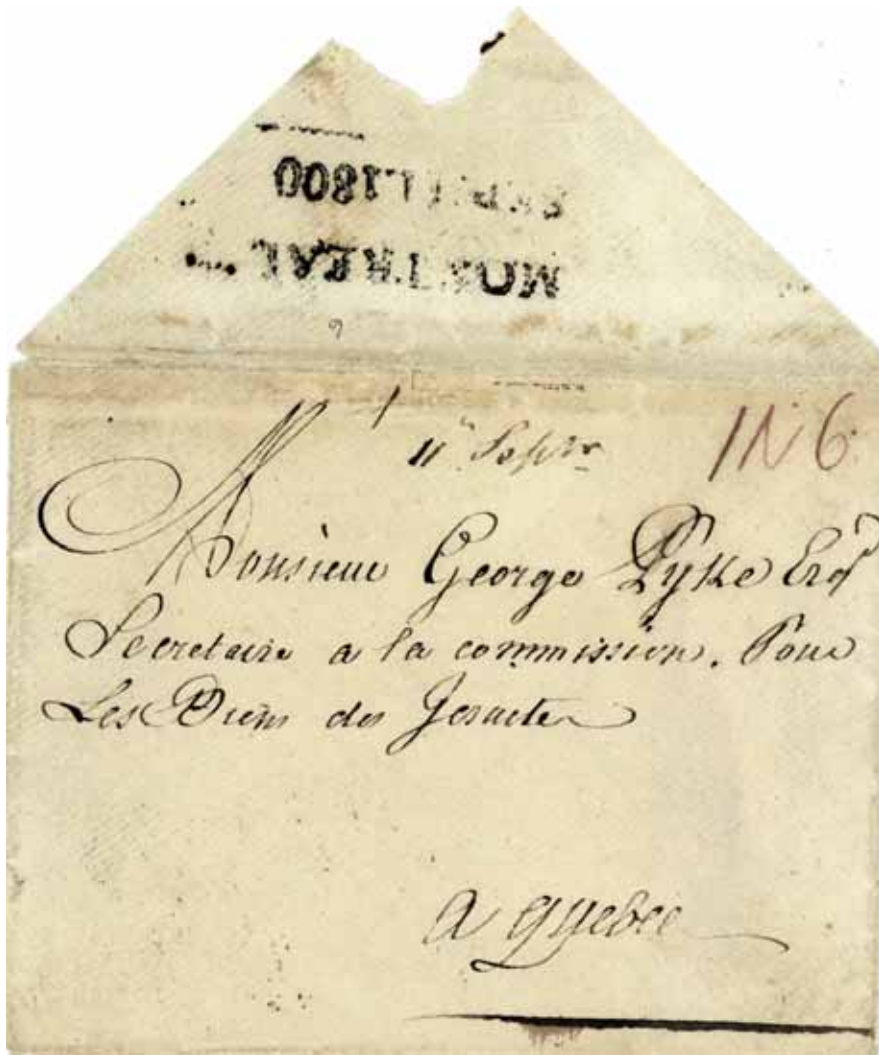 MONTREAL
SEP 11. 1800
11. Sepbr
1N6
Monsieur George Pyke Esqr
Secretaire a la commission. Pour
Les Biens des Jesuites
a Quebec